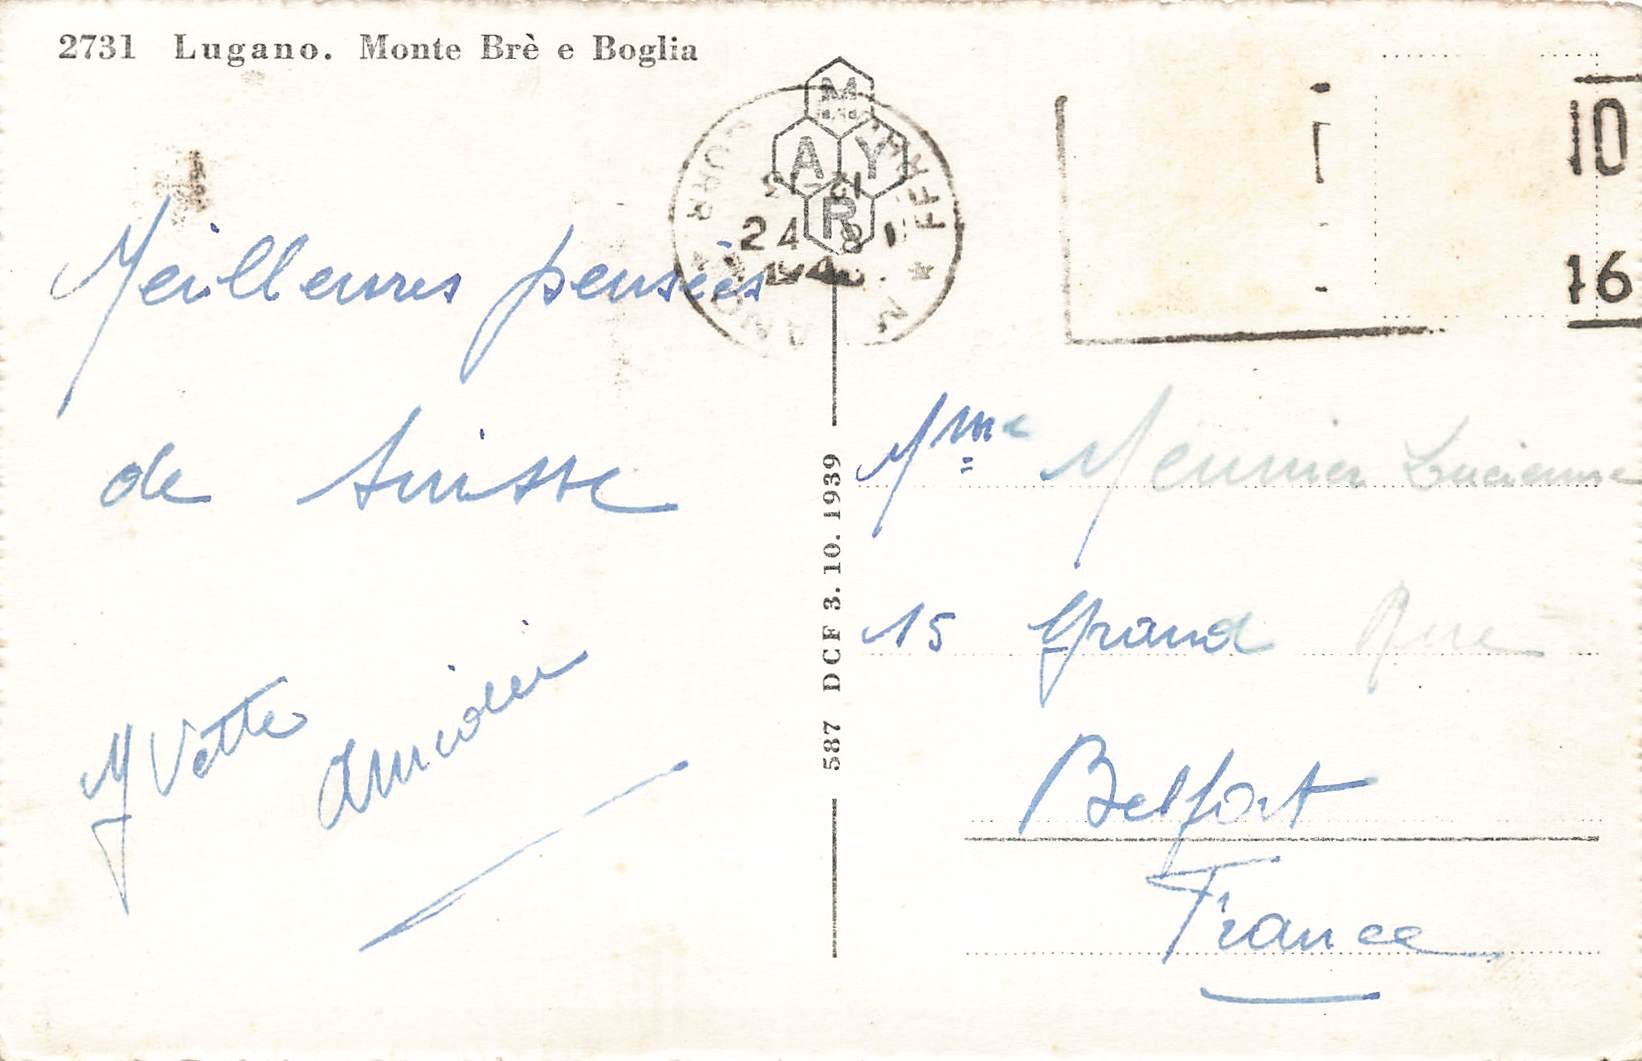 2731 Lugano. Monte Brè e Boglia
M
A Y
R
24
Meilleures pensées
de Suisse
Yvette
587 DCF 3. 10. 1939
10
16
Mme Meunier Lucienne
15 Grand Rue
Belfort
France